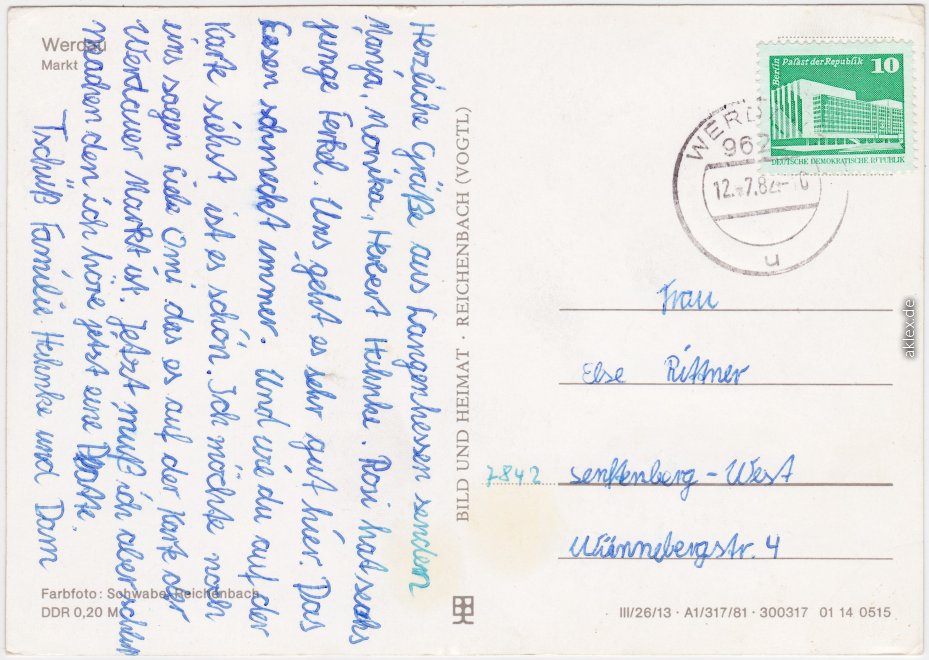 Werdau
Markt
Herzliche Grüße aus Langenhessen senden
Manja, Monika, Herbert Heinke. Rosi hat sechs
junge Ferkel. Uns geht es sehr gut hier. Das
Essen schmeckt immer. Und wie du auf der
Karte siehst ist es schön. Ich möchte noch
eins sagen liebe Omi das es auf der Karte der
Werdauer Markt ist. Jetzt muß ich aber schluß
machen den ich höre jetzt eine Platte.
Tschüß Familie Heinke und Dam
Farbfoto: Schwabe, Reichenbach
DDR 0,20 M
BILD UND HEIMAT · REICHENBACH (VOGTL)
Berlin Palast der Republik 10
DEUTSCHE DEMOKRATISCHE REPUBLIK
WERD
962
12.-7.82
u
Frau
Else Rittner
7842 Senftenberg-West
Wünnebergstr. 4
III/26/13 · A1/317/81 · 300317 01 14 0515
aklex.de